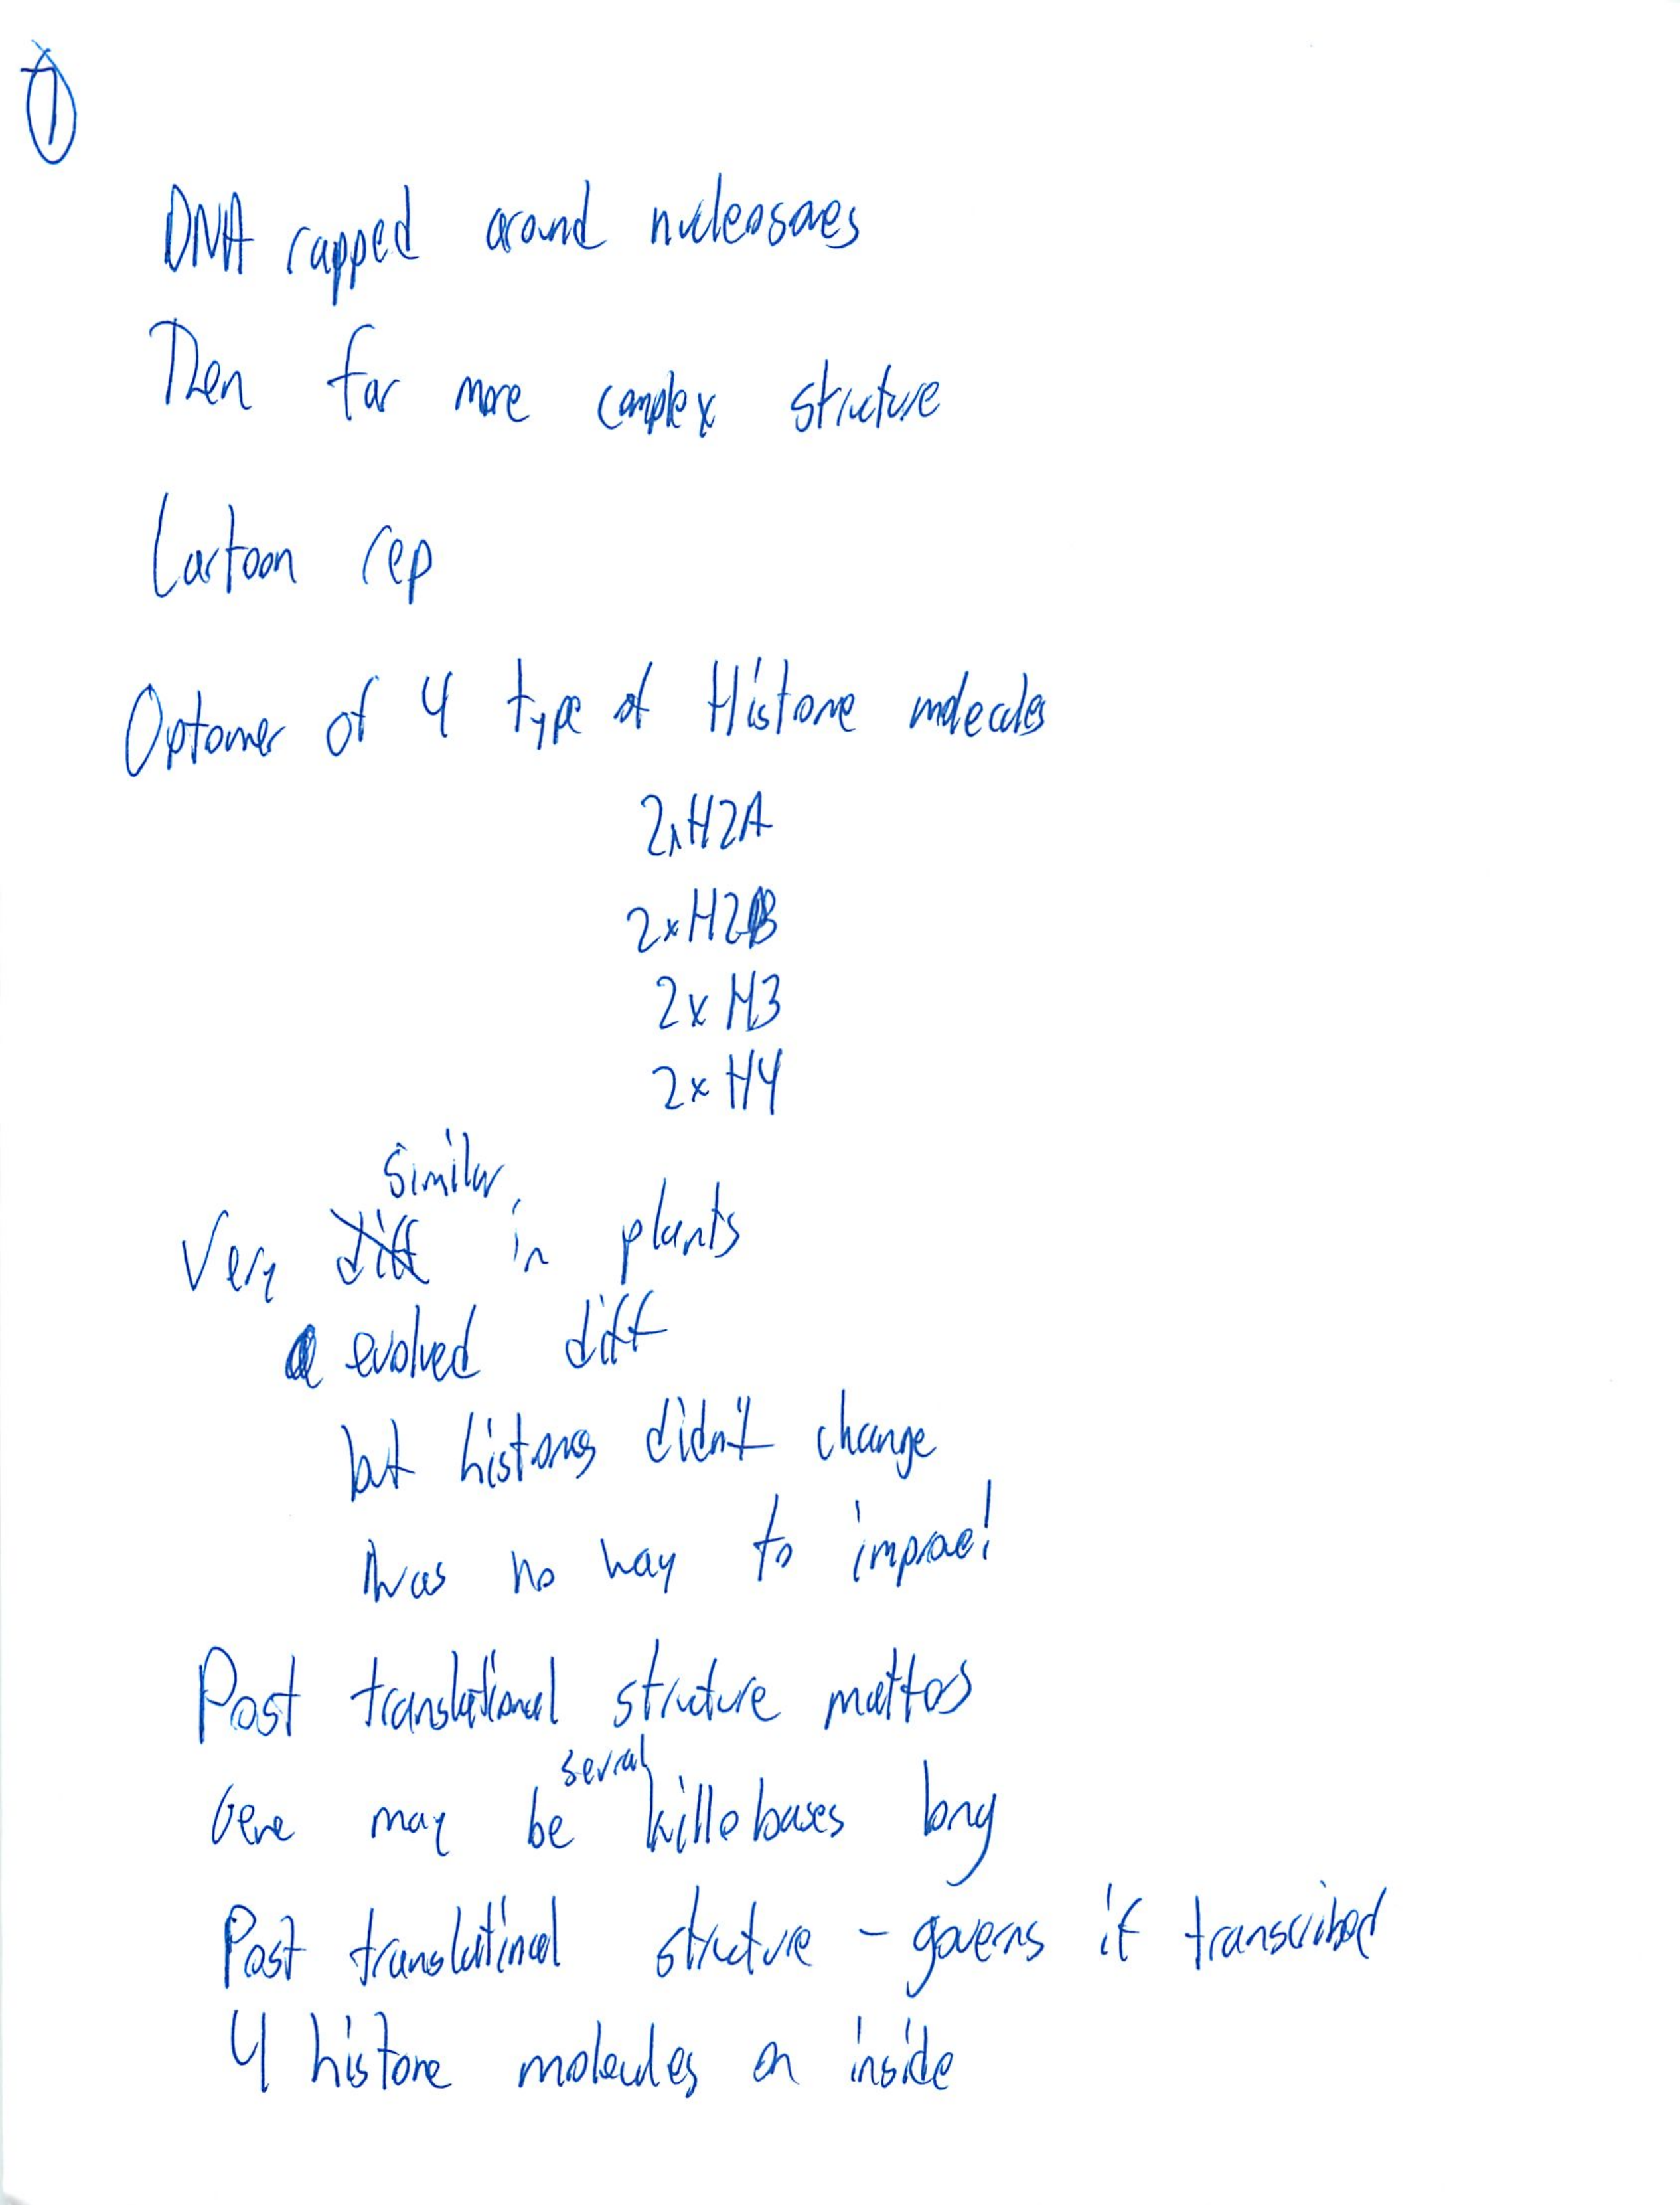 7
DNA rapped around nucleosomes
Then far more complex structure
Cartoon rep
Optomer of 4 type of Histone molecules
2xH2A
2xH2B
2x H3
2x H4
similar
Very diff in plants
evolved diff
but histones didn't change
was no way to improve!
Post translational structure matters
several
Gene may be killobases long
Post translational structure - governs if transcribed
4 histone molecules on inside